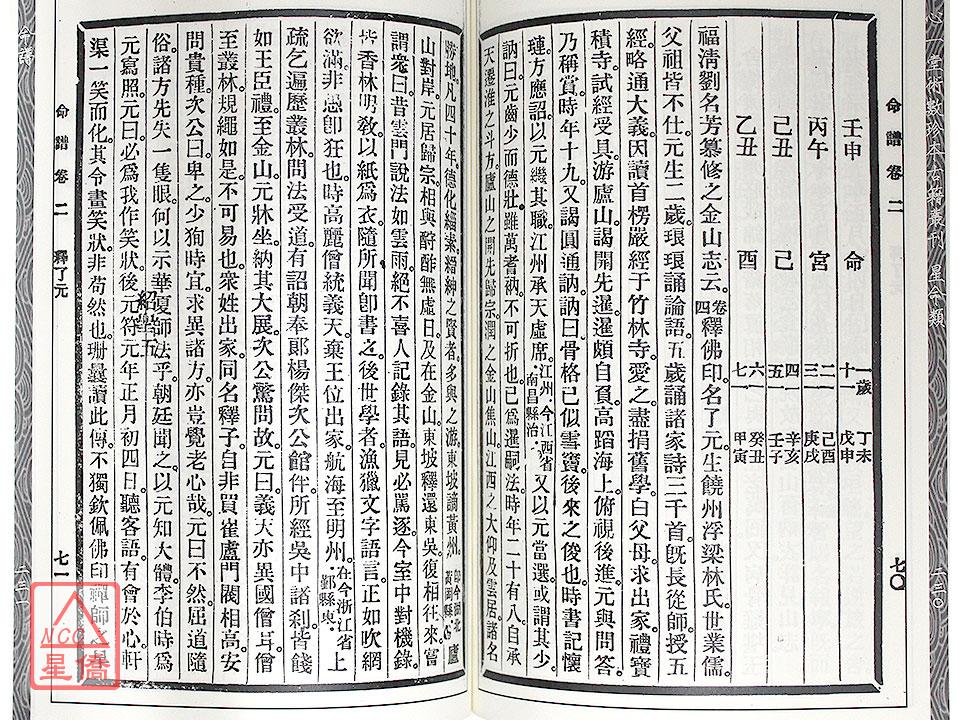 命譜卷二
七〇
壬申　命　一歲　丁未　十一　戊申
丙午　宮　二一　己酉　三一　庚戌
己丑　己　四一　辛亥　五一　壬子
乙丑　酉　六一　癸丑　七一　甲寅
福淸劉名芳纂修之金山志云。卷四釋佛印名了元生饒州浮梁林氏世業儒
父祖皆不仕元生二歲琅琅誦論語五歲誦諸家詩三千首旣長從師授五
經略通大義因讀首楞嚴經于竹林寺愛之盡捐舊學白父母求出家禮寶
積寺試經受具游廬山謁開先暹暹頗自負高蹈海上俯視後進元與問答
乃稱賞時年十九又謁圓通訥訥曰骨格已似雪竇後來之俊也時書記懷
璉方應詔以元㡬其職江州承天虛席江州今江西省南昌縣治又以元當選或謂其少
訥曰元齒少而德壯雖萬耆衲不可折也已爲暹嗣法時年二十有八自承
天遷淮之斗方廬山之開先歸宗潤之金山焦山江西之大仰及雲居諸名
藍地凡四十年德化緇素縉紳之賢者多與之游東坡謫黃州卽今湖北黃岡縣廬
山對岸元居歸宗相與酧酢無虛日及在金山東坡釋還東吳復相往來嘗
謂衆曰昔雲門說法如雲雨絕不喜人記錄其語見必罵逐今室中對機錄
皆香林明敎以紙爲衣隨所聞卽書之後世學者漁獵文字語言正如吹網
欲滿非愚卽狂也時高麗僧統義天棄王位出家航海至明州在今浙江省鄞縣東上
疏乞遍歷叢林問法受道有詔朝奉郞楊傑次公館伴所經吳中諸刹皆餞
如王臣禮至金山元牀坐納其大展次公驚問故元曰義天亦異國僧耳僧
至叢林規繩如是不可易也衆姓出家同名釋子自非買崔盧門閥相高安
問貴種次公曰卑之少徇時宜求異諸方亦豈覺老心哉元曰不然屈道隨
俗諸方先失一隻眼何以示華夏師法乎朝廷聞之以元知大體李伯時爲
元寫照元曰必爲我作笑狀後元符元年正月初四日聽客語有會於心軒
紹聖五
渠一笑而化其令畫笑狀非苟然也珊彝讀此傳不獨欽佩佛印禪師之
命譜卷二　釋了元
七一
NCC
星僑